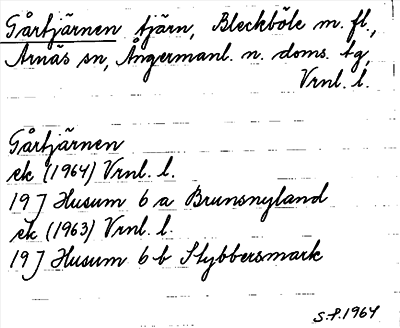 Gårtjärnen tjärn, Bleckböle m. fl.,
Arnäs sn, Ångermanl. n. doms. tg,
Vrnl. l.
Gårtjärnen
ek (1964) Vrnl. l.
19 J Husum 6 a Brunsnyland
ek (1963) Vrnl. l.
19 J Husum 6 b Stybbersmark
S.P. 1964